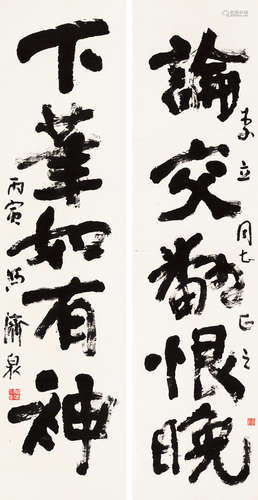 論交翻恨晚
立同志正之
下筆如有神
丙寅馮濟泉